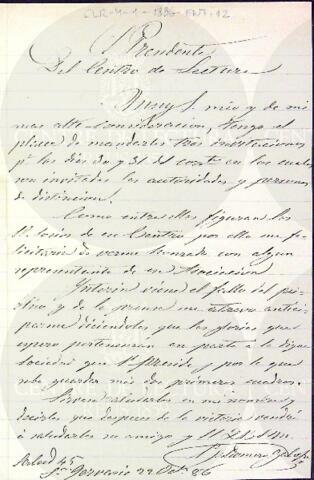 CLR-4-1-1886-ENT-12
Sr Presidente
Del Centro de Lectura
Muy S. mio y de mi
mas alta consideracion, tengo el
placer de mandarles tres invitaciones
pª los dias 30 y 31 del corrte en los cuales
son invitadas las autoridades y personas
de distincion.
Como entre ellas figuran los
Sres Socios de su Centro, por ello me fe-
licitaria de verme honrado con algun
representante de su Asociacion
Interin viene el fallo del pú-
blico y de la prensa me atrevo antici-
parme diciendoles que las glorias que
espero pertenecen en parte á la digna
Sociedad que V. preside, por lo que
sabe guardar mis dos primeros cuadros.
Sirvase saludarles en mi nombre y
decirles que despues de la victoria vendrá
á saludarles su amigo y
Salud 45
Sn Gervasio 22 Oct. 86